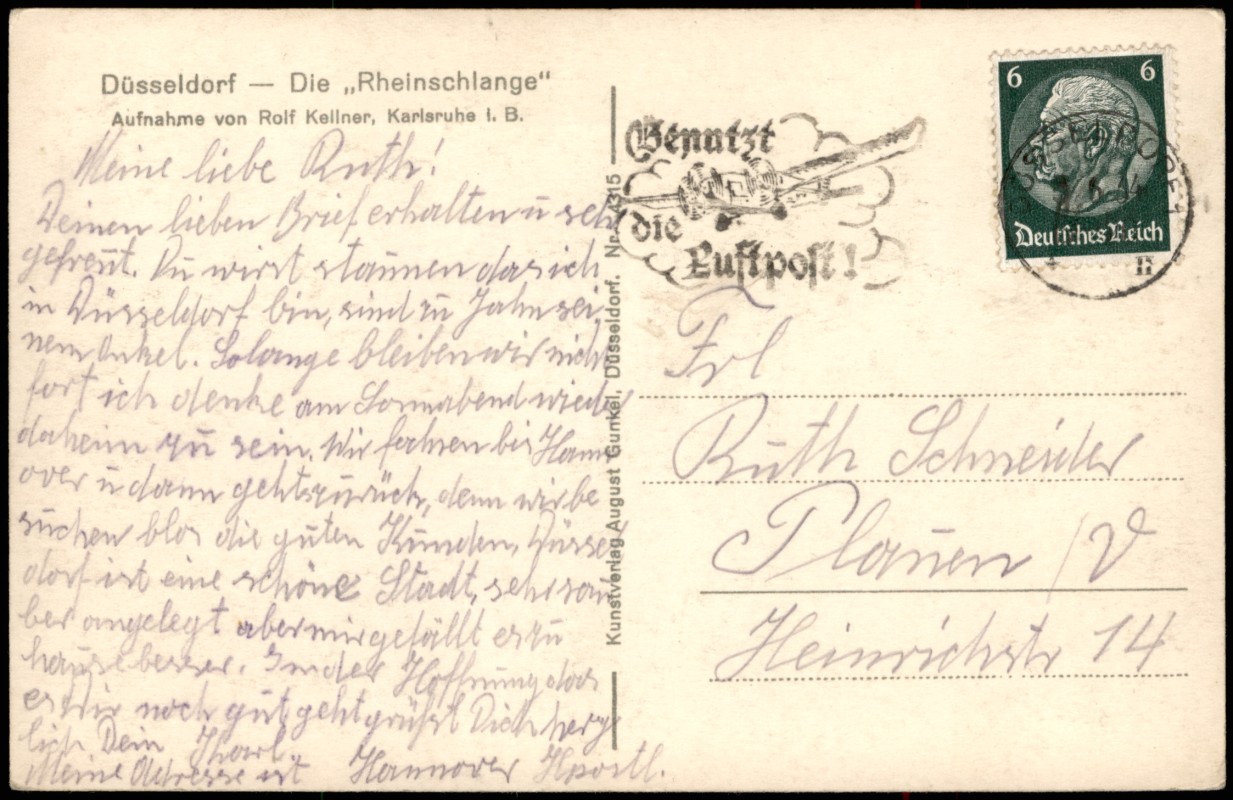 Düsseldorf — Die „Rheinschlange"
Aufnahme von Rolf Kellner, Karlsruhe i. B.
Meine liebe Ruth!
Deinen lieben Brief erhalten u seh
gefreut. Du wirst staunen das ich
in Düsseldorf bin, sind zu Jahn sei
nem Onkel. Solange bleiben wir nich
fort ich denke am Sonnabend wieder
daheim zu sein. Wir fahren bis Hann
over u dann gehts zurück, denn wir be
suchen blos die guten Kunden. Düssel
dorf ist eine schöne Stadt, sehr sau
ber angelegt aber mir gefällt es zu
hause besser. In der Hoffnung das
es Dir noch gut geht grüßt Dich herz
lich Dein
Meine Adresse ist Hannover
Kunstverlag August Gunkel, Düsseldorf. Nr. 4315
Benutzt
die
Luftpost!
6 6
Deutsches Reich
Frl
Ruth Schneider
Plauen /V
Heinrichstr 14